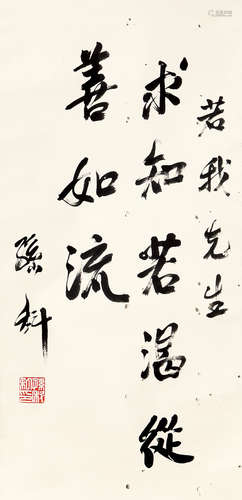 若我先生
求知若渴從
善如流
孫科